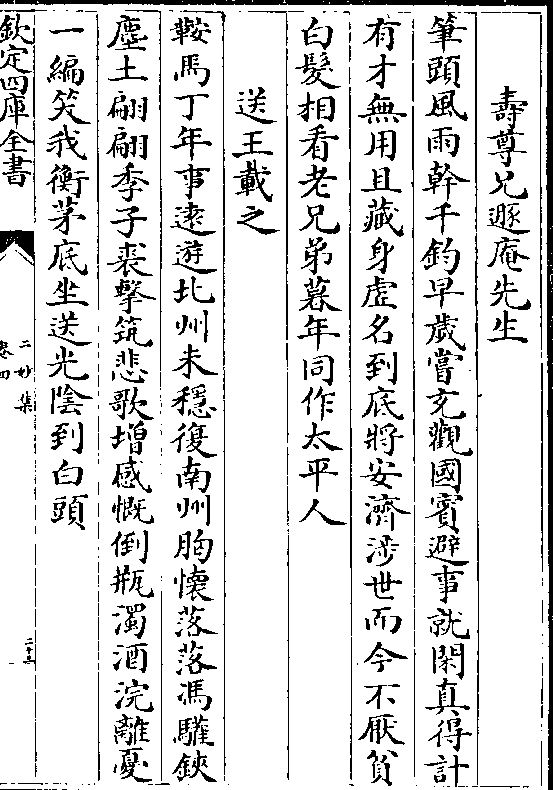 壽尊兄遯庵先生
筆頭風雨幹千鈞早歲嘗充觀國賓避事就閑真得計
有才無用且藏身虛名到底將安濟涉世而今不厭貧
白髮相看老兄弟暮年同作太平人
送王載之
鞍馬丁年事遠遊北州未穩復南州胸懷落落馮驩鋏
塵土翩翩季子裘擊筑悲歌增感慨倒瓶濁酒浣離憂
一編笑我衡茅底坐送光陰到白頭
欽定四庫全書
二妙集
卷四
二十三